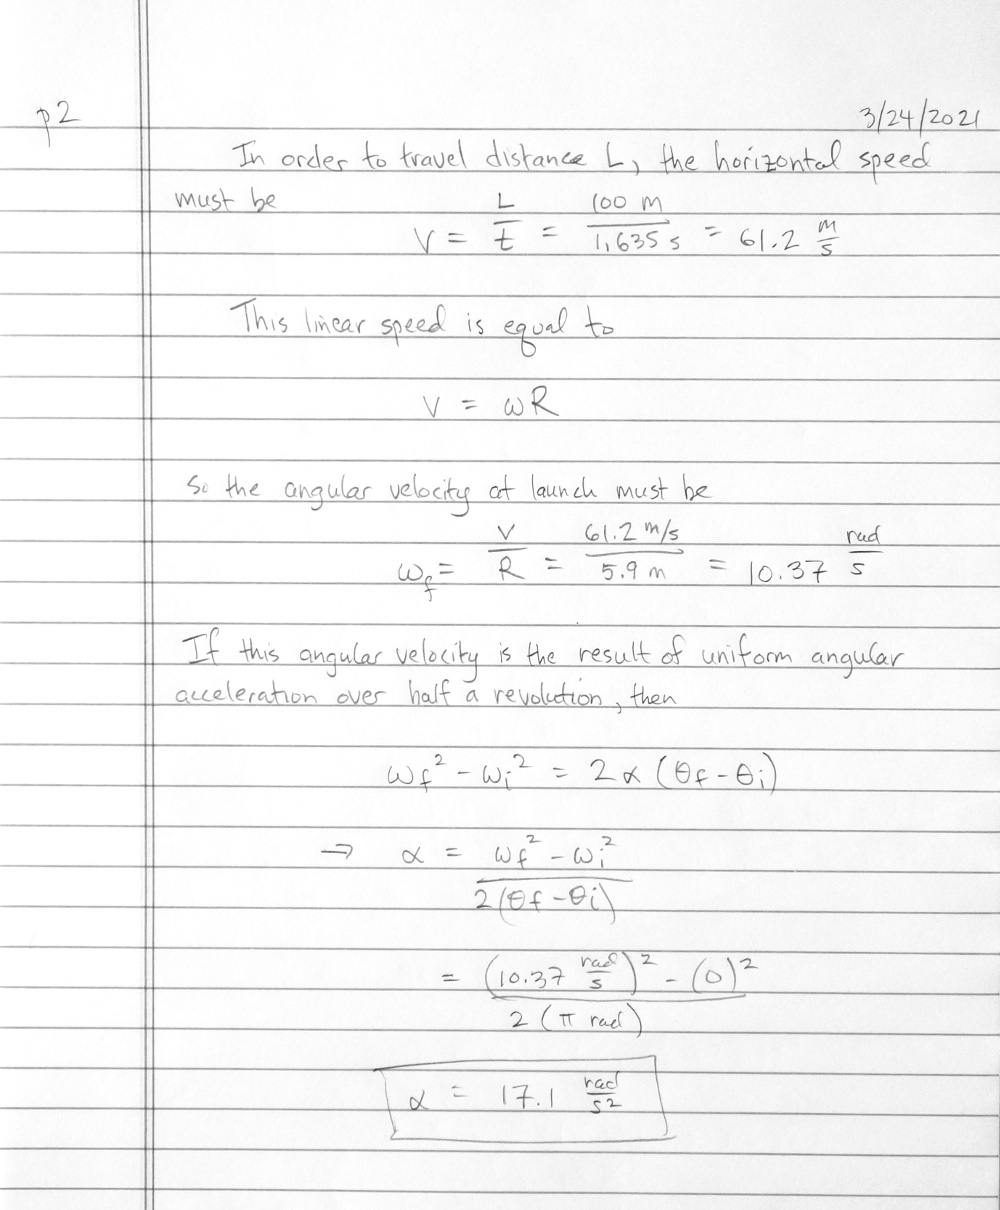 p2 3/24/2021
In order to travel distance L, the horizontal speed
must be
V = L/t = 100 m / 1.635 s = 61.2 m/s
This linear speed is equal to
V = ωR
So the angular velocity at launch must be
ω_f = V/R = 61.2 m/s / 5.9 m = 10.37 rad/s
If this angular velocity is the result of uniform angular
acceleration over half a revolution, then
ω_f² - ω_i² = 2α(θ_f - θ_i)
→ α = ω_f² - ω_i² / 2(θ_f - θ_i)
= (10.37 rad/s)² - (0)² / 2(π rad)
α = 17.1 rad/s²